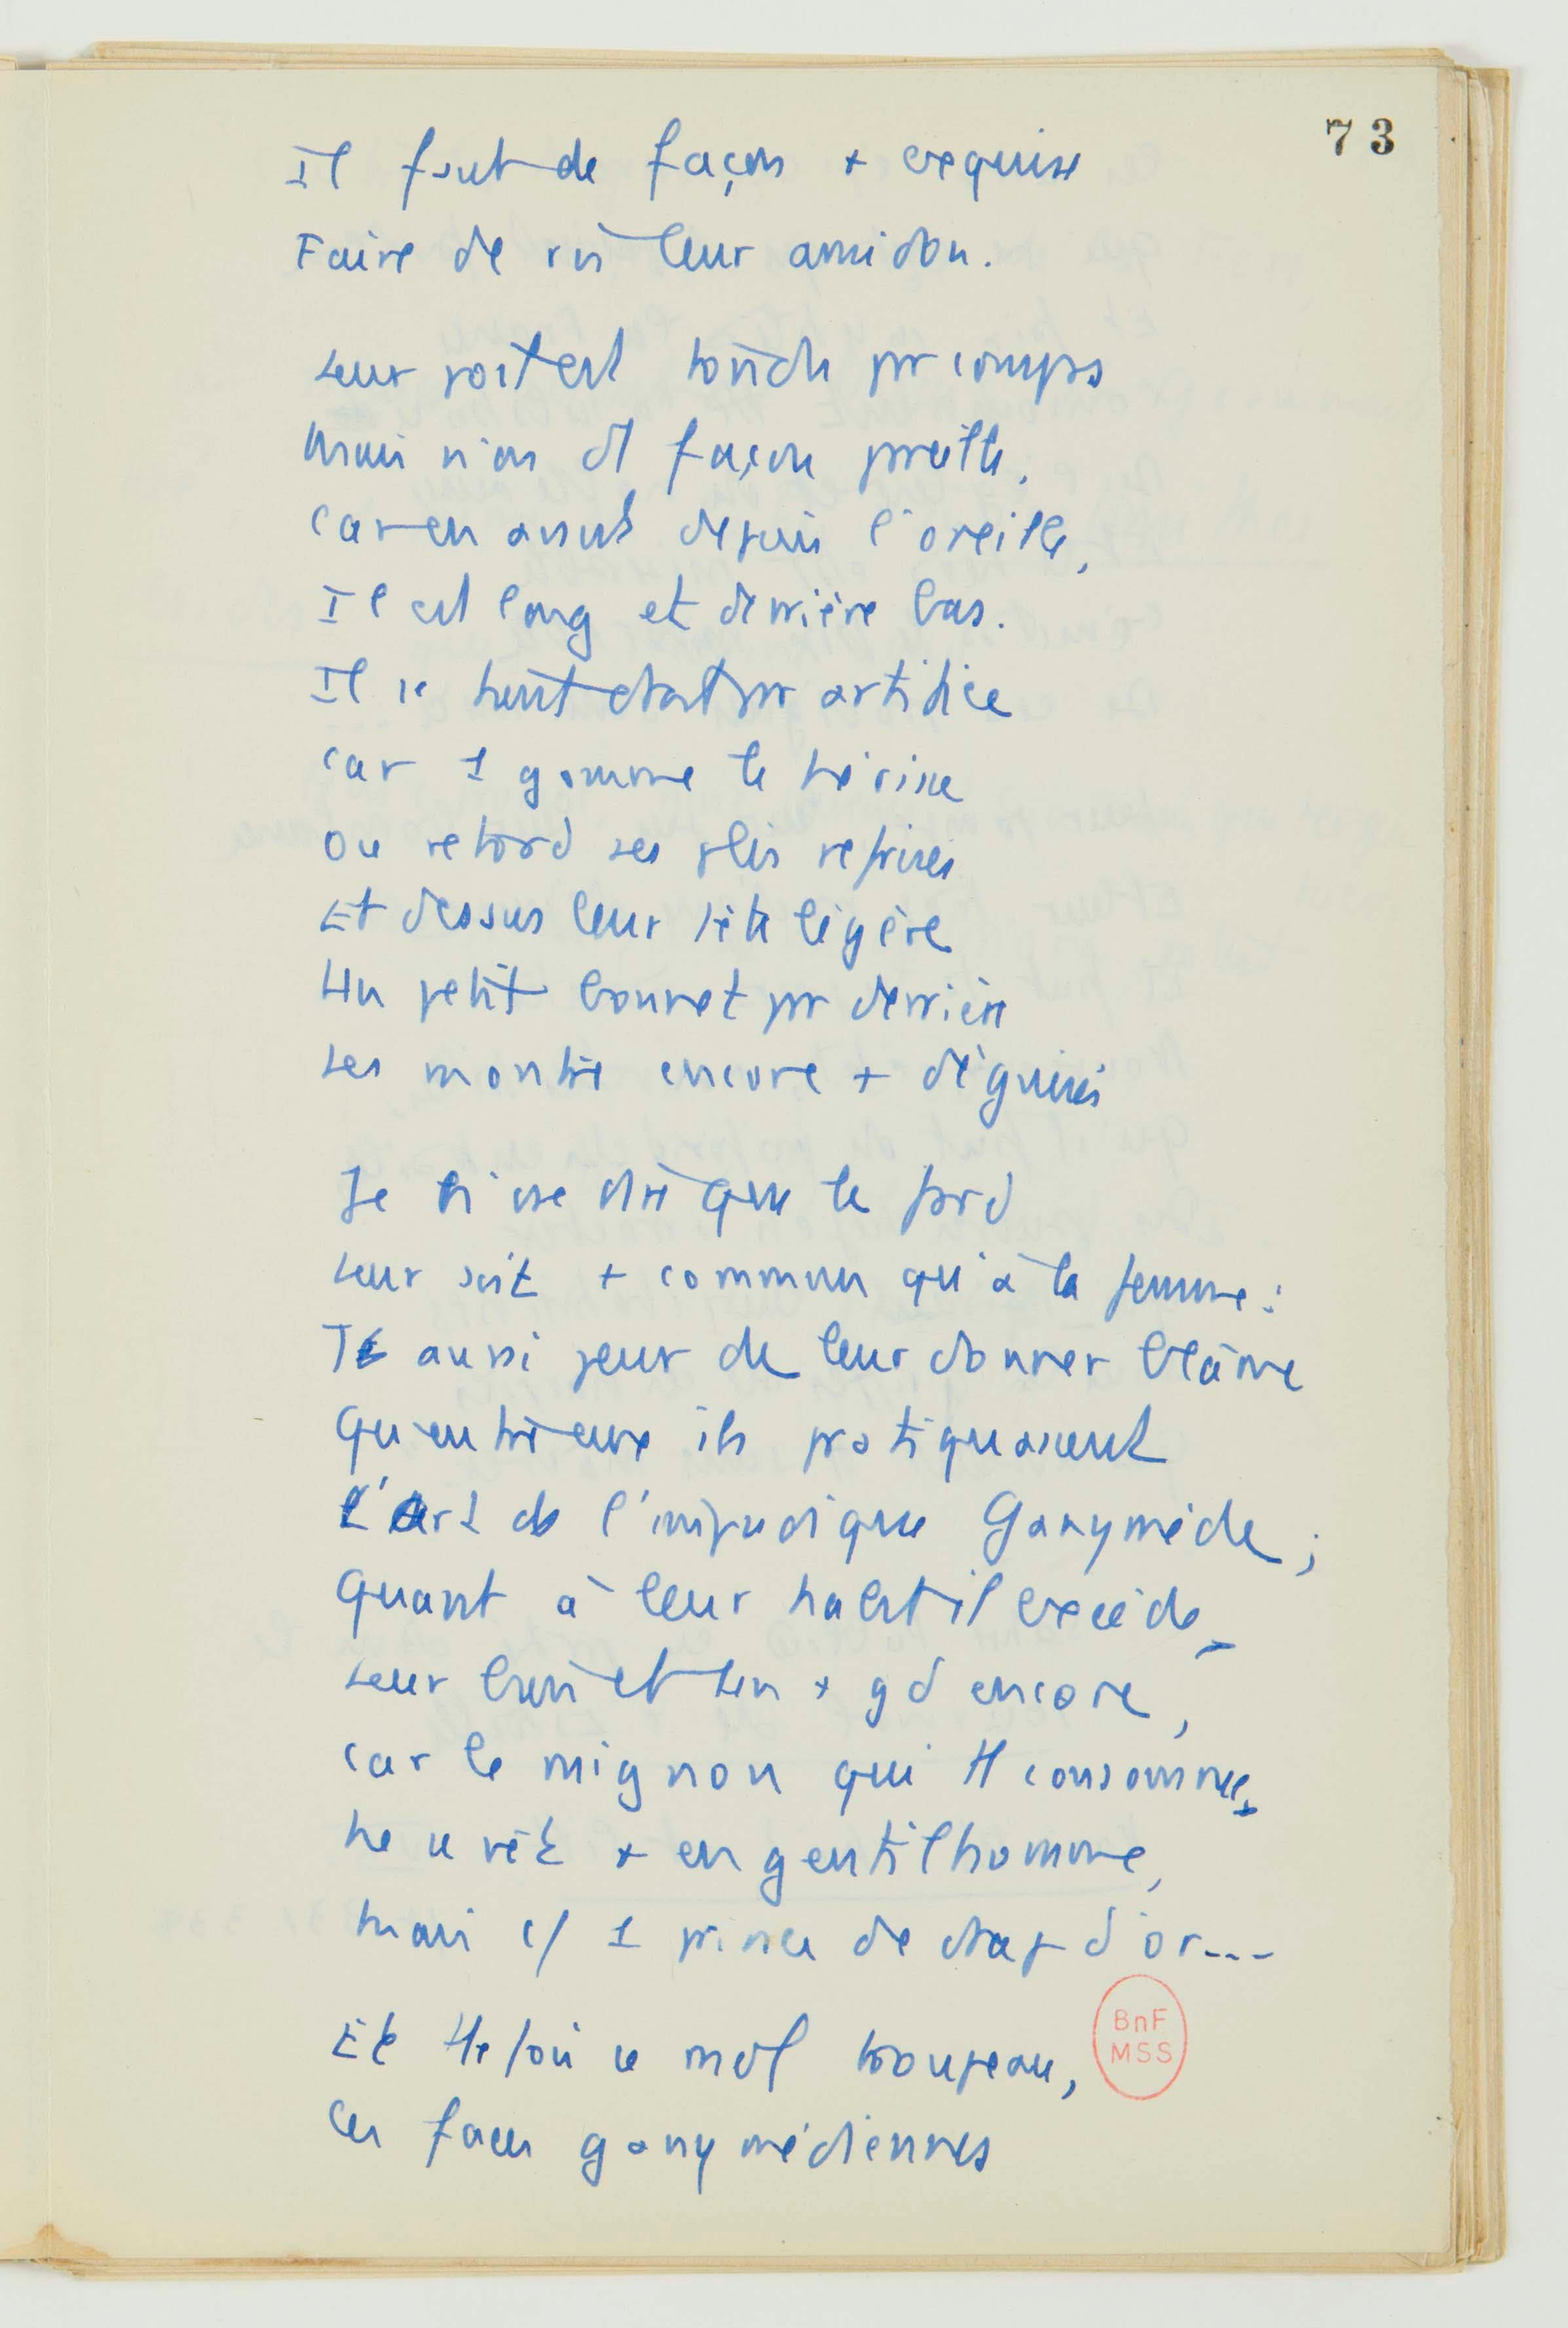 73
Il faut de façon + exquise
Faire de riz leur amidon.
Leur poil est tondu par compas
Mais non d'1 façon pareille,
Car en avant depuis l'oreille,
Il est long et derrière bas.
Il se tient droit par artifice
Car 1 gomme le hérisse
Ou retord ses plis refrisés
Et dessus leur tête légère
Un petit bonnet par derrière
Les montre encore + déguisés
Je n'ose dire que le fard
Leur soit + commun qu'à la femme :
Tt aussi peur de leur donner blâme
Qu'entre eux ils pratiquassent
L'Art de l'impudique Ganymède ;
Quant à leur habit il excède
Leur bien et un + gd encore,
Car le mignon qui tt consomme,
Ne se vêt + en gentilhomme,
Mais c/ 1 prince de drap d'or...
Et ce mol troupeau,
Ces faces ganymédiennes
BnF
MSS